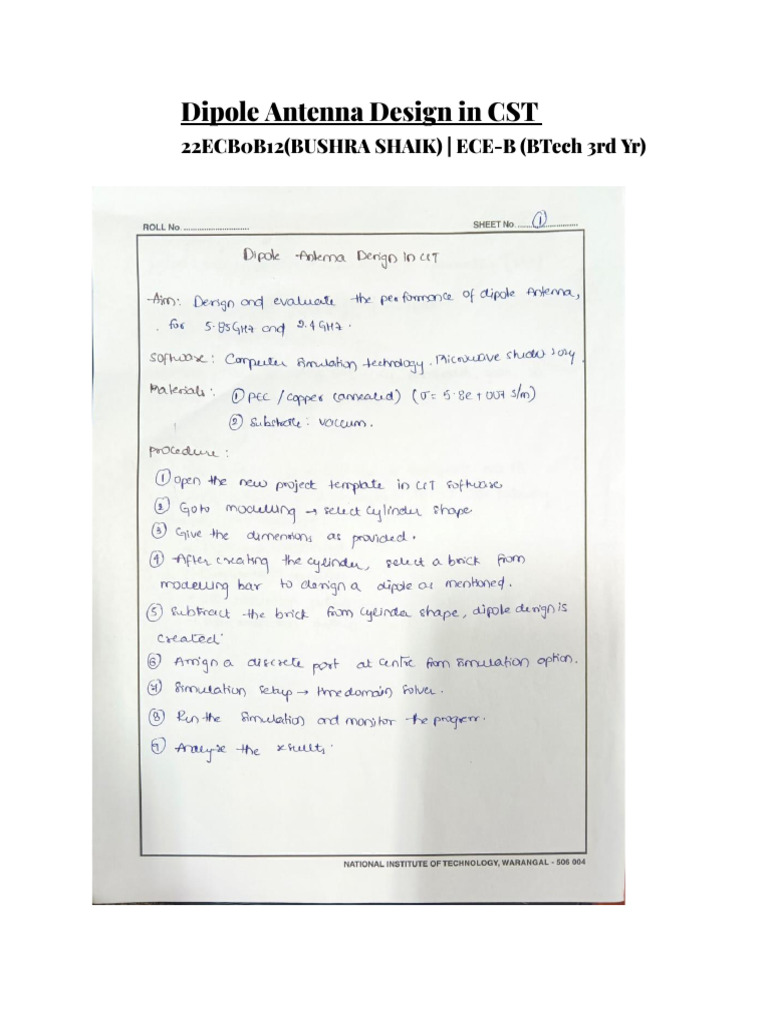 Dipole Antenna Design in CST
22ECB0B12(BUSHRA SHAIK) | ECE-B (BTech 3rd Yr)
ROLL No ............................
SHEET No ........①................
Dipole Antenna Design in CST
Aim: Design and evaluate the performance of dipole Antenna,
for 5.85GHz and 2.4GHz.
Software: Computer simulation technology. Microwave studio
Materials: ① PEC / Copper (annealed) (σ= 5.8e+007 S/m)
② Substrate: vaccum.
procedure:
① Open the new project template in CST software
② Goto modelling → select cylinder shape
③ Give the dimensions as provided.
④ After creating the cylinder, select a brick from
modelling bar to design a dipole as mentioned.
⑤ Subtract the brick from cylinder shape, dipole design is
created.
⑥ Assign a discrete port at centre from simulation option.
⑦ Simulation setup → time domain solver.
⑧ Run the simulation and monitor the progress.
⑨ Analyse the results.
NATIONAL INSTITUTE OF TECHNOLOGY, WARANGAL - 506 004